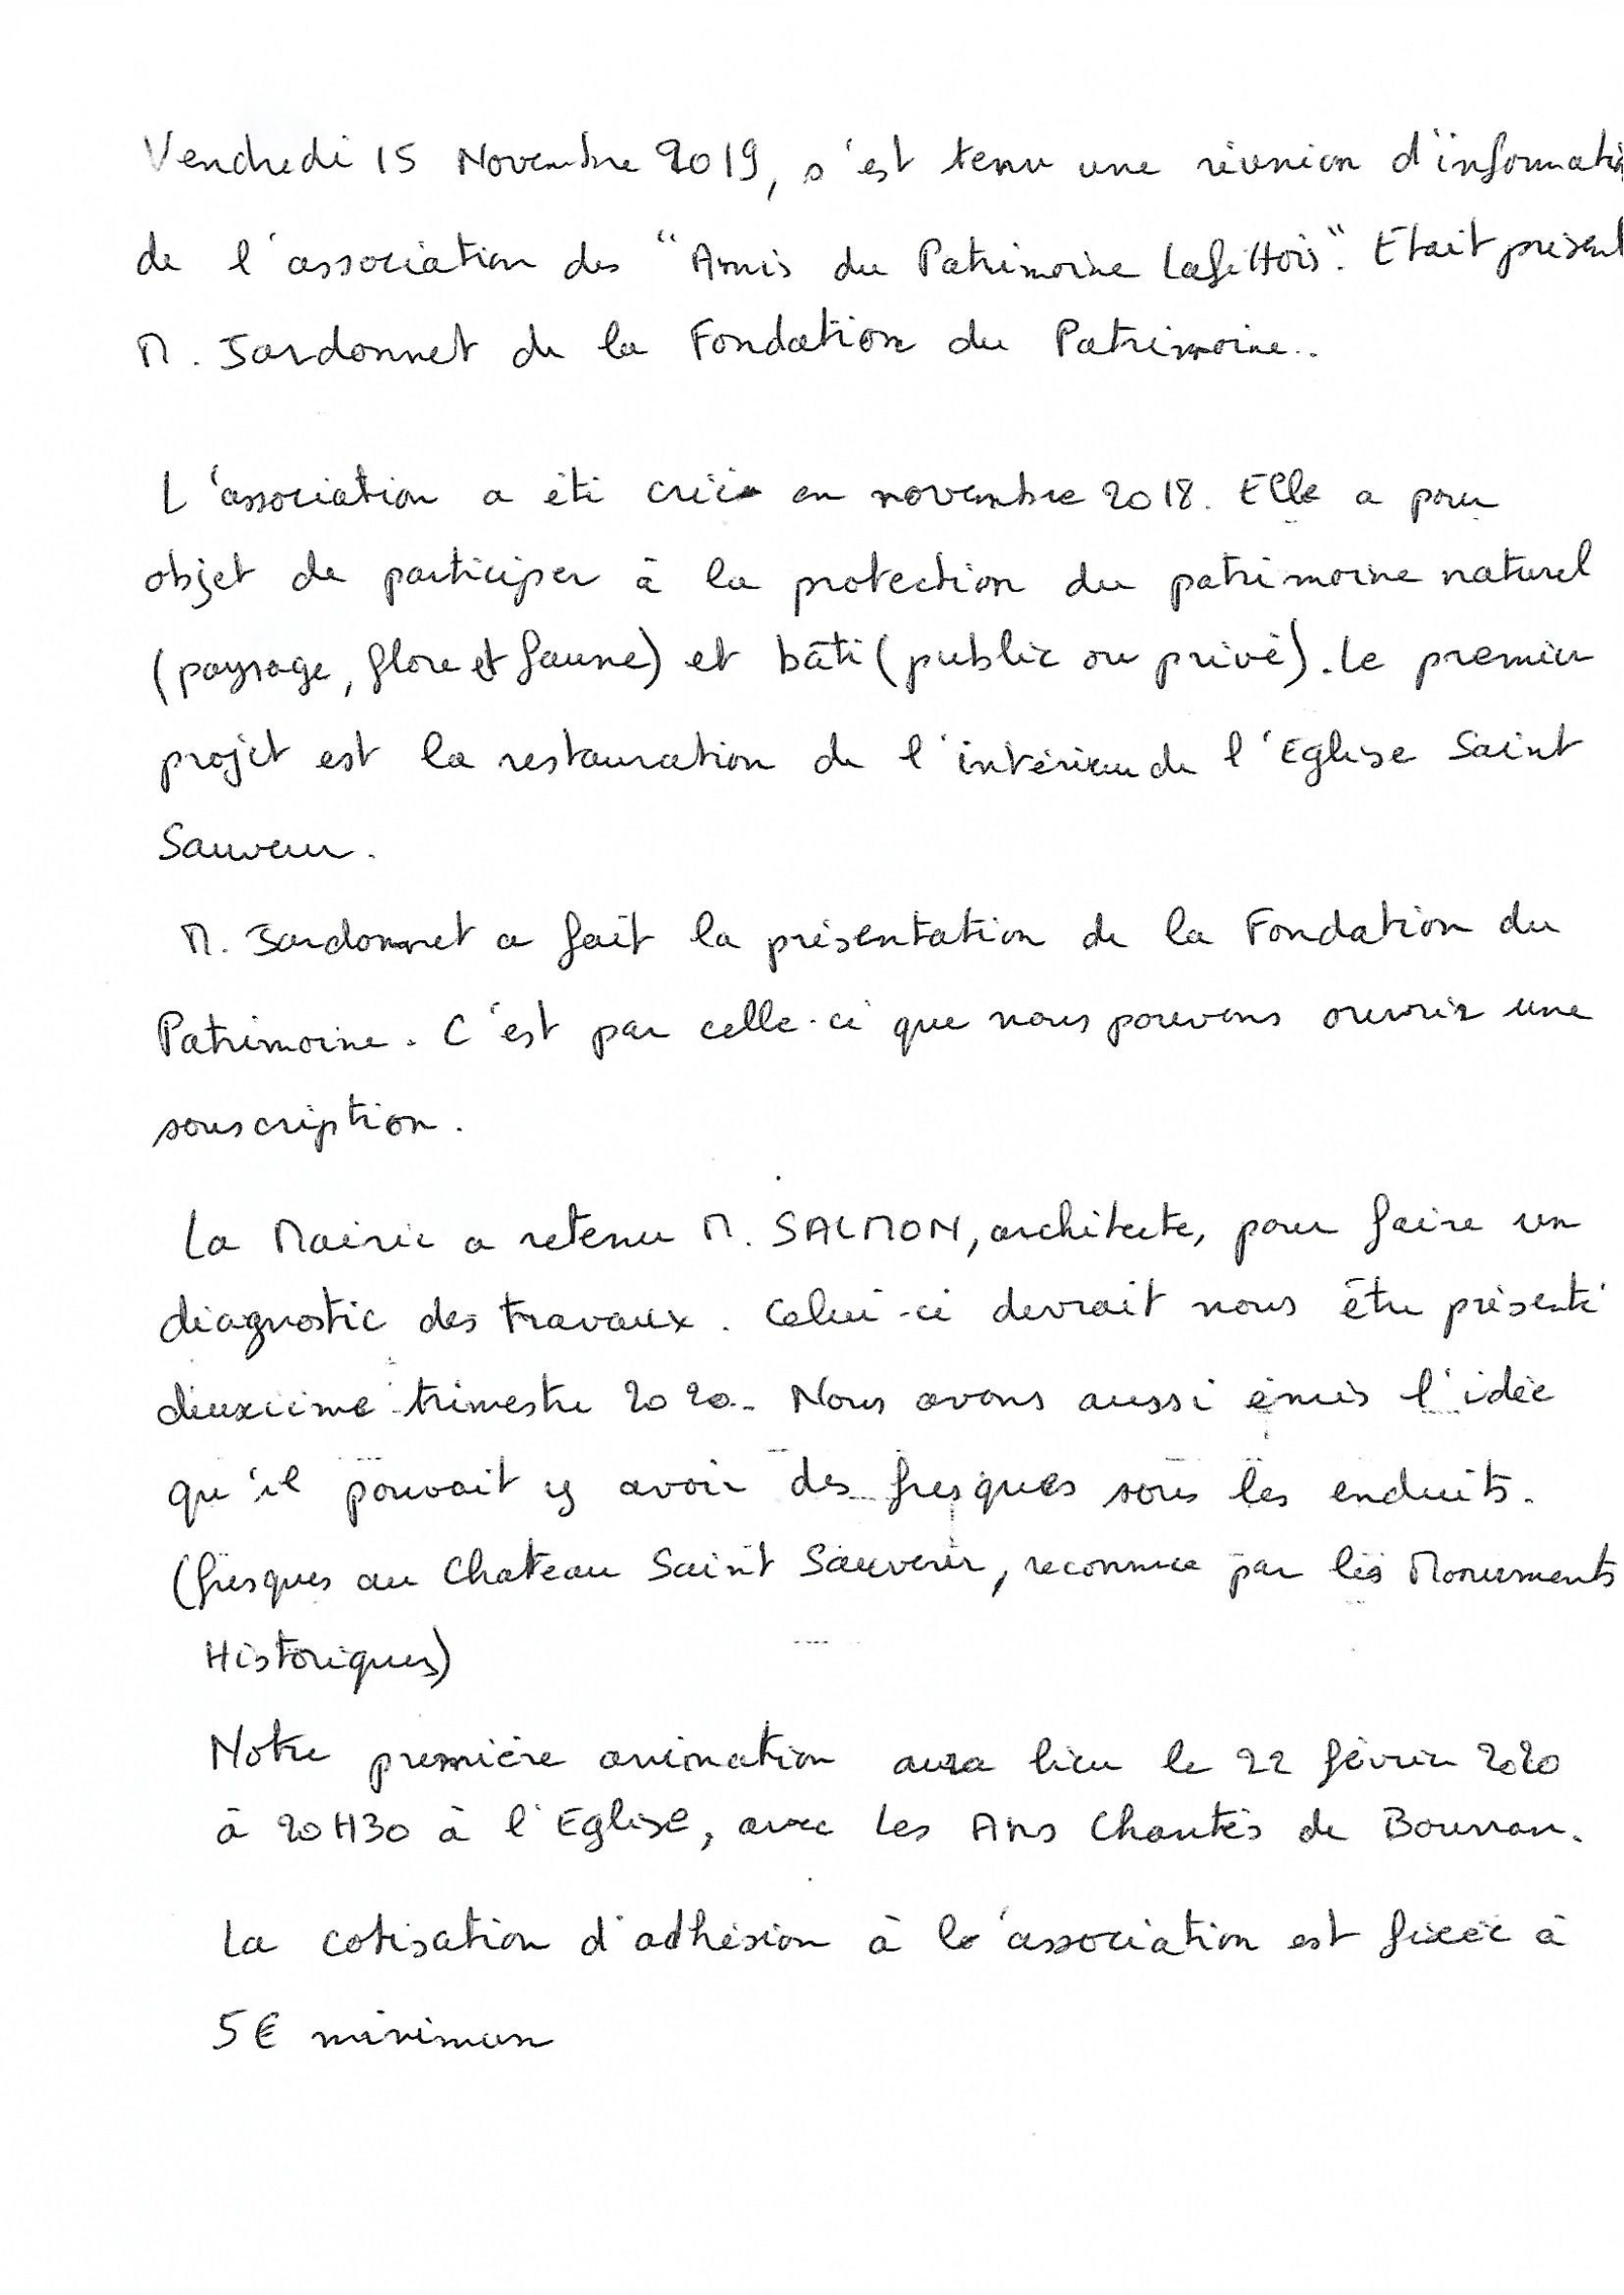 Vendredi 15 Novembre 2019, s'est tenu une réunion d'informatio
de l'association des "Amis du Patrimoine Lafittois". Etait présent
M. Jardonnet de la Fondation du Patrimoine..
L'association a été créée en novembre 2018. Elle a pour
objet de participer à la protection du patrimoine naturel
(paysage, flore et faune) et bâti (public ou privé). Le premier
projet est la restauration de l'intérieur de l'Eglise Saint
Sauveur.
M. Jardonnet a fait la présentation de la Fondation du
Patrimoine. C'est par celle-ci que nous pouvons ouvrir une
souscription.
La Mairie a retenu M. SALMON, architecte, pour faire un
diagnostic des travaux. Celui-ci devrait nous être présenté
deuxième trimestre 2020. Nous avons aussi émis l'idée
qu'il pouvait y avoir des fresques sous les enduits.
(fresques au Chateau Saint Sauveur, reconnue par les Monuments
Historiques)
Notre première animation aura lieu le 22 février 2020
à 20H30 à l'Eglise, avec Les Ans Chantés de Bourran.
La cotisation d'adhésion à l'association est fixée à
5€ minimum